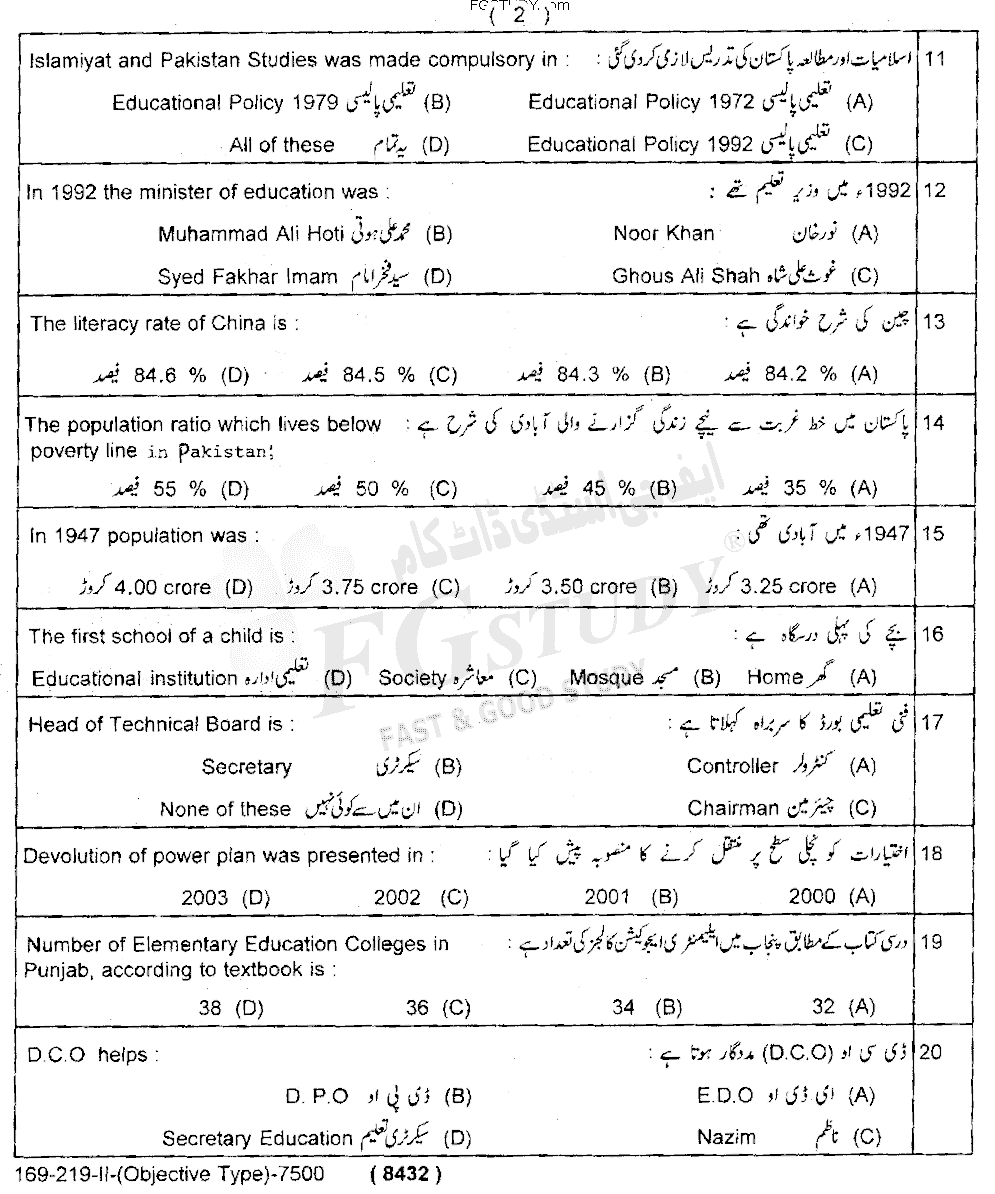 ( 2 )
11 اسلامیات اور مطالعہ پاکستان کی تدریس لازمی کر دی گئی : Islamiyat and Pakistan Studies was made compulsory in :
(A) تعلیمی پالیسی Educational Policy 1972 (B) تعلیمی پالیسی Educational Policy 1979
(C) تعلیمی پالیسی Educational Policy 1992 (D) یہ تمام All of these
12 1992ء میں وزیر تعلیم تھے : In 1992 the minister of education was :
(A) نور خان Noor Khan (B) محمد علی ہوتی Muhammad Ali Hoti
(C) غوث علی شاہ Ghous Ali Shah (D) سید فخر امام Syed Fakhar Imam
13 چین کی شرح خواندگی ہے : The literacy rate of China is :
(A) 84.2 % فیصد (B) 84.3 % فیصد (C) 84.5 % فیصد (D) 84.6 % فیصد
14 پاکستان میں خط غربت سے نیچے زندگی گزارنے والی آبادی کی شرح ہے : The population ratio which lives below
poverty line in Pakistan:
(A) 35 % فیصد (B) 45 % فیصد (C) 50 % فیصد (D) 55 % فیصد
15 1947ء میں آبادی تھی : In 1947 population was :
(A) 3.25 crore کروڑ (B) 3.50 crore کروڑ (C) 3.75 crore کروڑ (D) 4.00 crore کروڑ
16 بچے کی پہلی درسگاہ ہے : The first school of a child is :
(A) گھر Home (B) مسجد Mosque (C) معاشرہ Society (D) تعلیمی ادارہ Educational institution
17 فنی تعلیمی بورڈ کا سربراہ کہلاتا ہے : Head of Technical Board is :
(A) کنٹرولر Controller (B) سیکرٹری Secretary
(C) چیئرمین Chairman (D) ان میں سے کوئی نہیں None of these
18 اختیارات کو نچلی سطح پر منتقل کرنے کا منصوبہ پیش کیا گیا : Devolution of power plan was presented in :
(A) 2000 (B) 2001 (C) 2002 (D) 2003
19 درسی کتاب کے مطابق پنجاب میں ایلیمنٹری ایجوکیشن کالجز کی تعداد ہے : Number of Elementary Education Colleges in
Punjab, according to textbook is :
(A) 32 (B) 34 (C) 36 (D) 38
20 ڈی سی او (D.C.O) مددگار ہوتا ہے : D.C.O helps :
(A) ای ڈی او E.D.O (B) ڈی پی او D. P.O
(C) ناظم Nazim (D) سیکرٹری تعلیم Secretary Education
169-219-II-(Objective Type)-7500 ( 8432 )
ایف جی اسٹڈی ڈاٹ کام
FGSTUDY®
FAST & GOOD STUDY